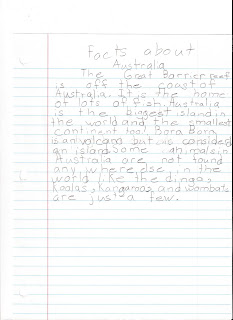 Facts about
Australia
The Great Barrier reef
is off the coast of
Australia. It's the home
of lots of fish. Australia
is the biggest island in
the world and the smallest
continent too! Bora Bora
is an volcano but is considerd
an island. Some animals in
Australia are not found
any where else in the
world like the dingo,
Koalas, Kangaroos, and wombats
are just a few.